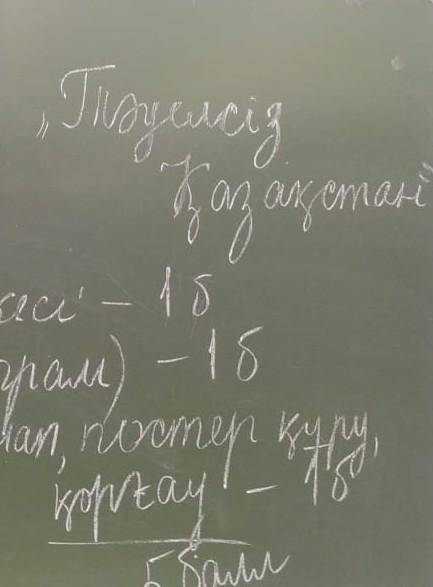 „Тәуелсіз
Қазақстан”
кесі – 1б
грам) – 1б
лап, постер құру,
қорғау – 1б
5 балл